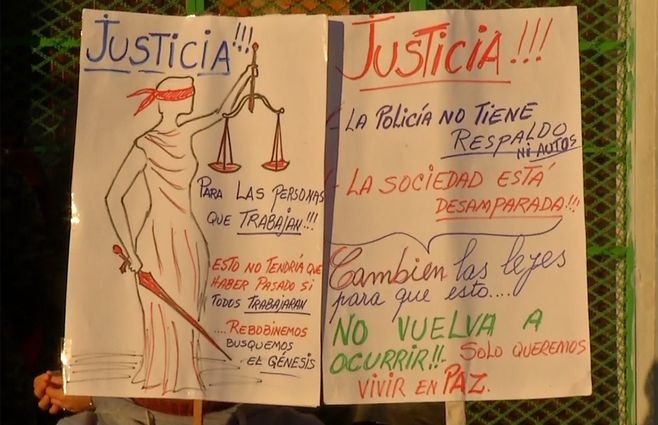 JUSTICIA!!!
PARA LAS PERSONAS
QUE TRABAJAN!!!
ESTO NO TENDRÍA QUE
HABER PASADO SI
TODOS TRABAJARAN
....REBOBINEMOS
BUSQUEMOS
EL GÉNESIS
JUSTICIA!!!
- LA POLICÍA NO TIENE
RESPALDO
NI AUTOS
- LA SOCIEDAD ESTÁ
DESAMPARADA!!!
Cambien las leyes
para que esto....
NO VUELVA A
OCURRIR!! SOLO QUEREMOS
VIVIR EN PAZ.